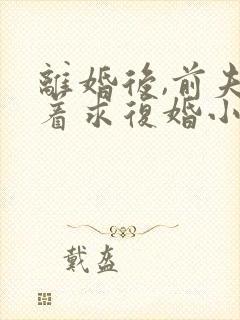 離婚後,前夫
着求復婚小
戴盔